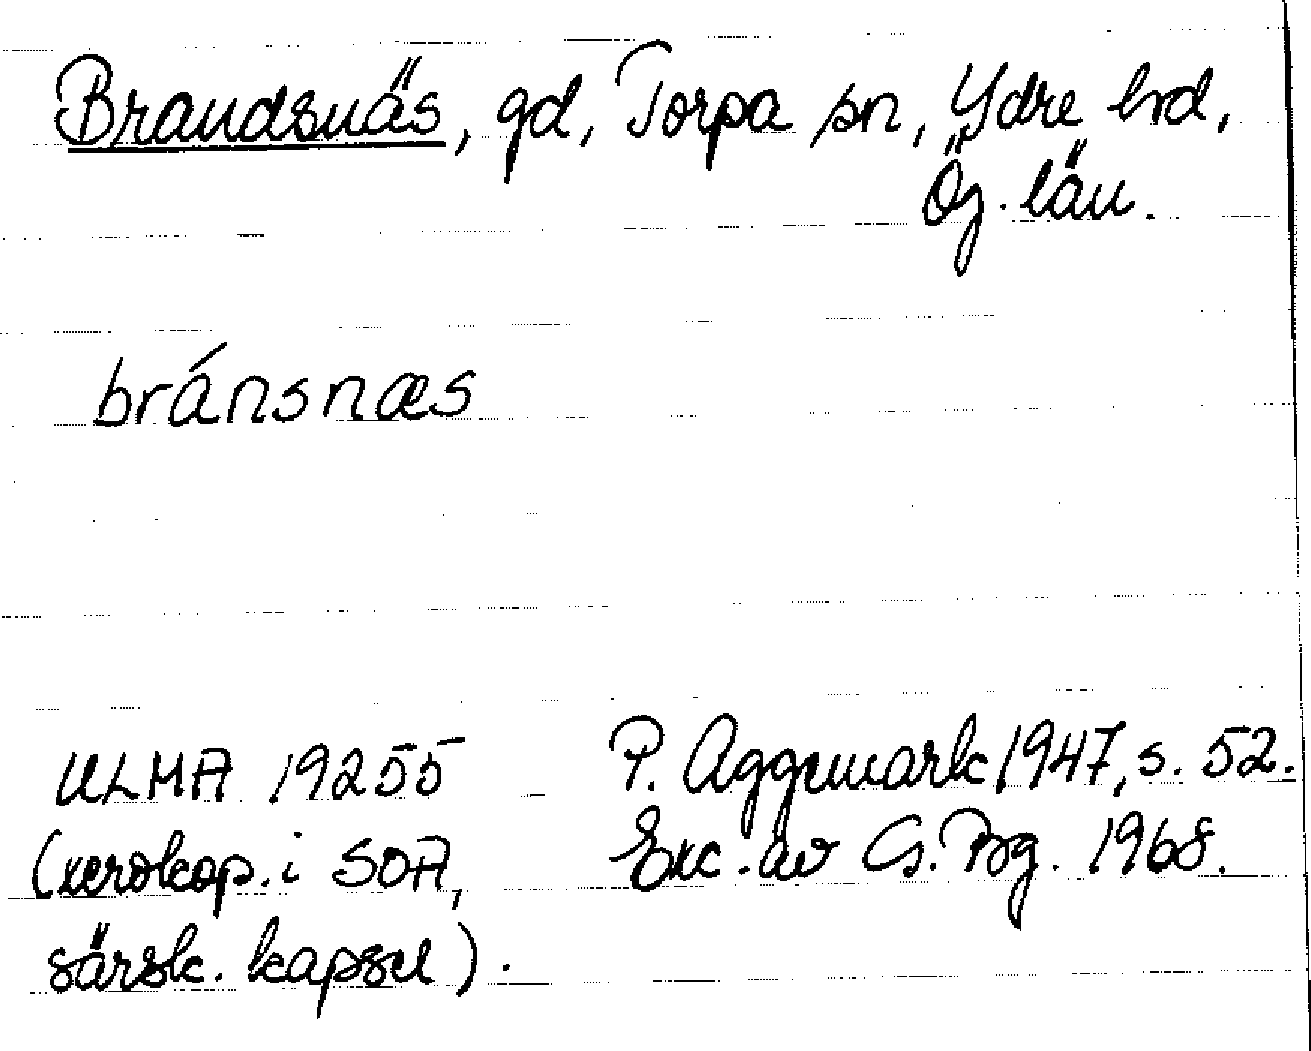 Brandsnäs, gd, Torpa sn, Ydre hd,
Ög. län.
bránsnæs
ULMA 19255
(xerokop. i SOA,
särsk. kapsel).
P. Aggemark 1947, s. 52.
Exc. av G. Bg. 1968.